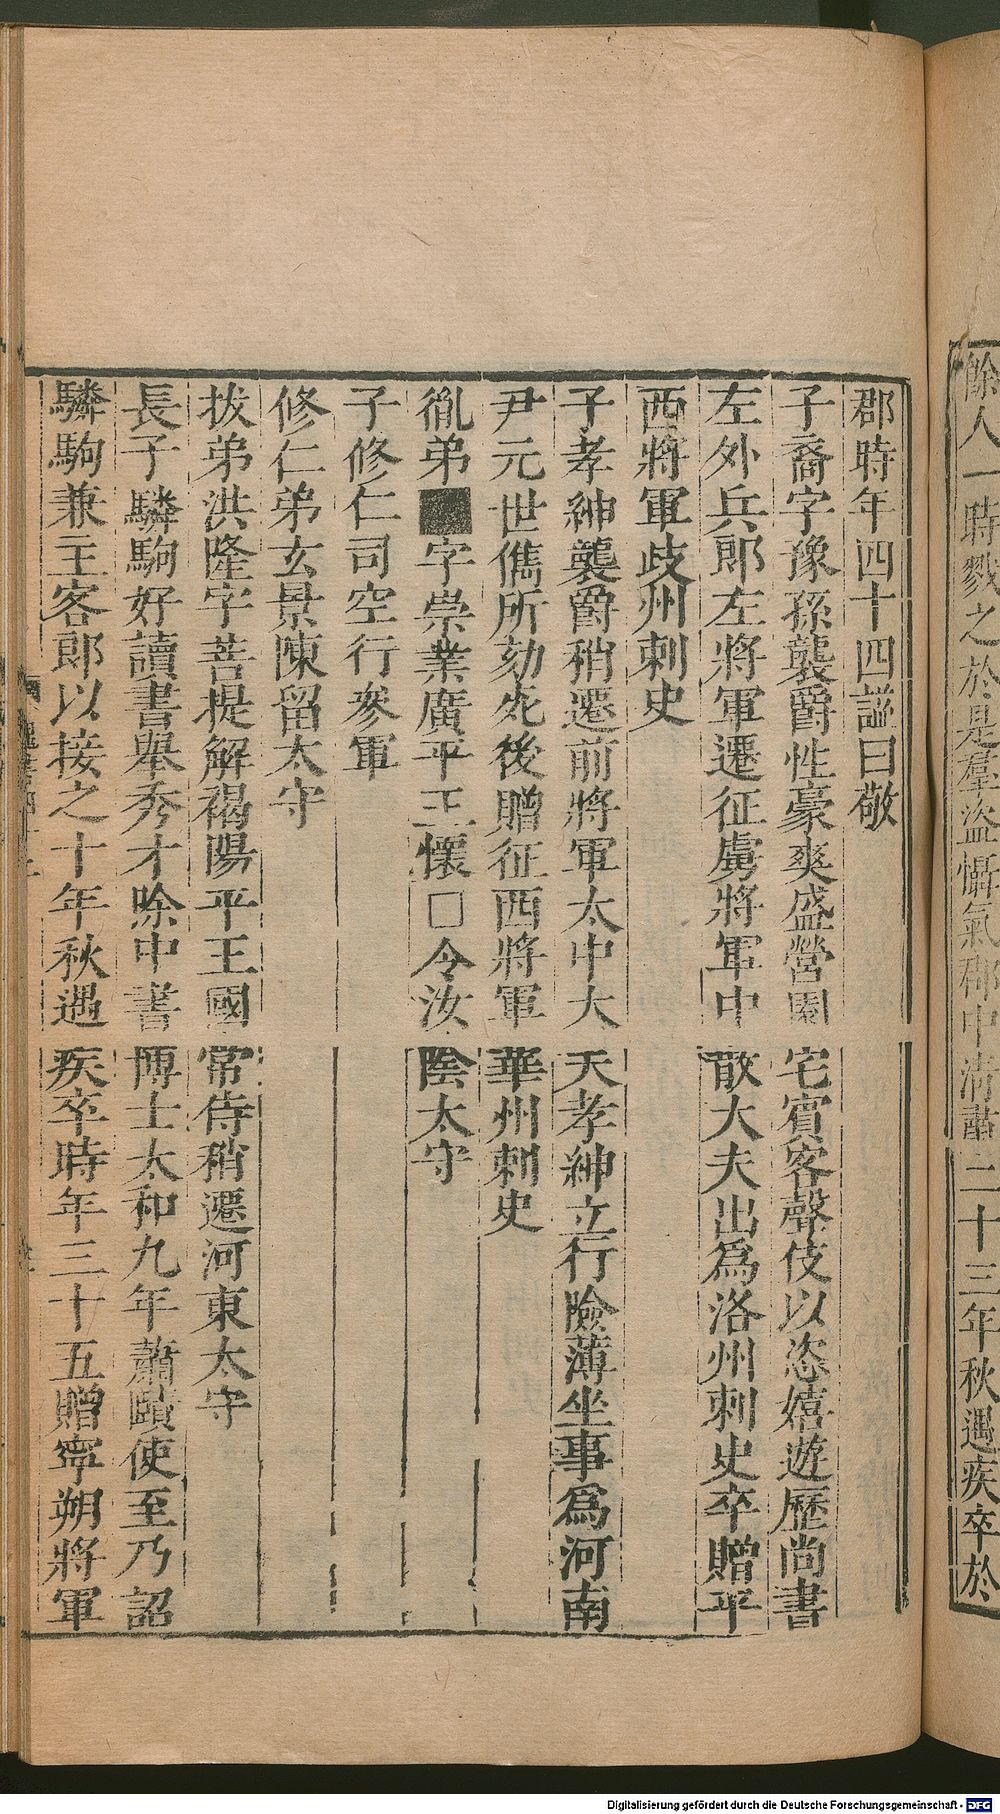 餘人一時戮之於是羣盜懾氣郡中清肅二十三年秋遇疾卒於
郡時年四十四諡曰敬
子裔字豫孫襲爵性豪爽盛營園宅賓客聲伎以恣嬉遊歷尚書
左外兵郎左將軍遷征虜將軍中散大夫出爲洛州刺史卒贈平
西將軍歧州刺史
子孝紳襲爵稍遷前將軍太中大夫孝紳立行險薄坐事爲河南
尹元世儁所劾死後贈征西將軍華州刺史
胤弟■字崇業廣平王懷□令汝陰太守
子修仁司空行參軍
修仁弟玄景陳留太守
拔弟洪隆字菩提解褐陽平王國常侍稍遷河東太守
長子驎駒好讀書舉秀才除中書博士太和九年蕭賾使至乃詔
驎駒兼主客郎以接之十年秋遇疾卒時年三十五贈寧朔將軍
Digitalisierung gefördert durch die Deutsche Forschungsgemeinschaft - DFG